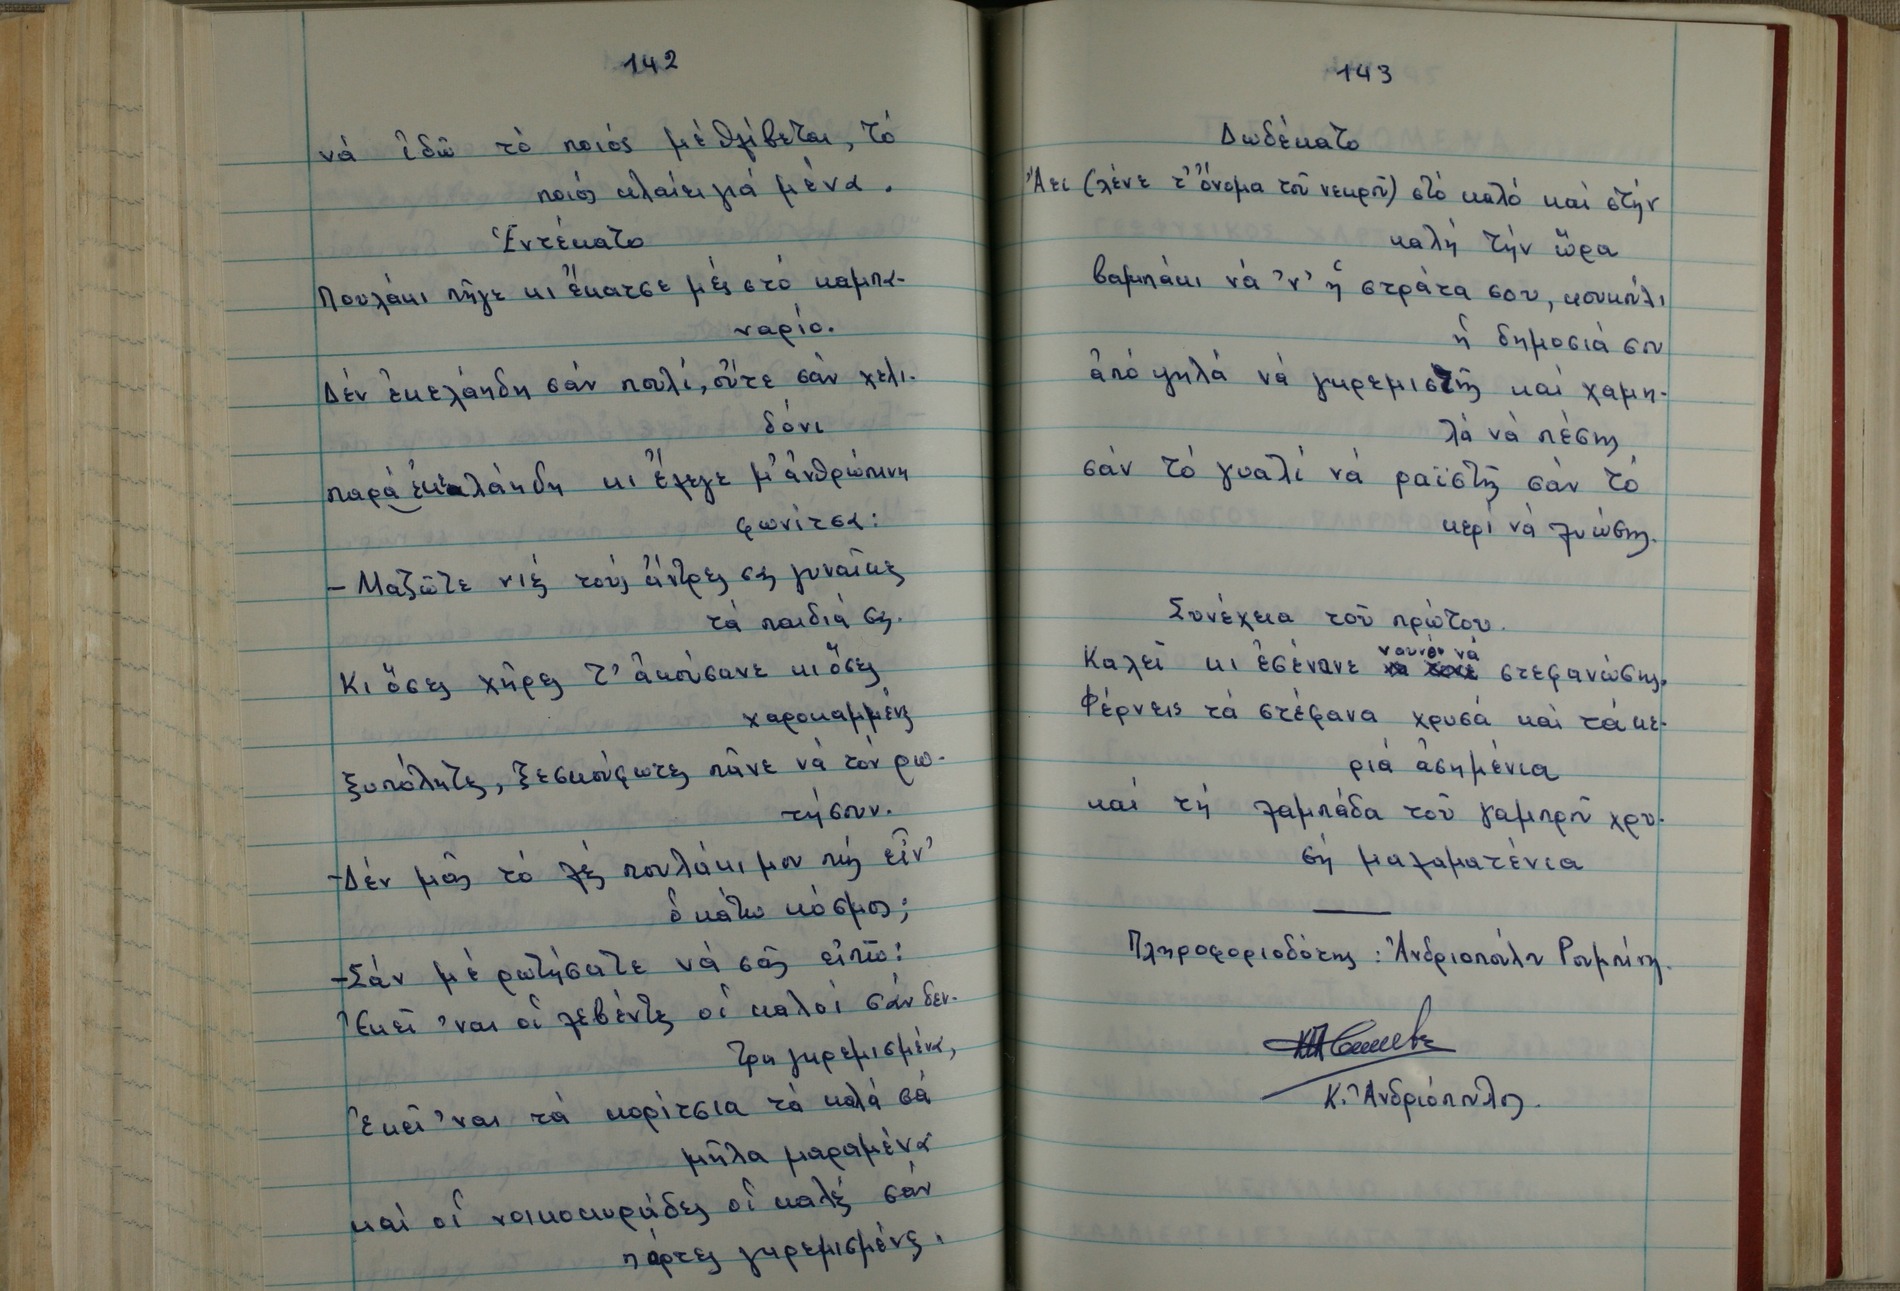 142
νά ἰδῶ τό ποιός μέ θλίβεται, τό
ποιός κλαίει γιά μένα.
Ἑντέκατο
Πουλάκι πῆγε κι ἔκατσε μές στό καμπα-
ναρίο.
Δέν ἐκελάηδη σάν πουλί, οὔτε σάν χελι-
δόνι
παρά ἐκελάηδη κι ἔλεγε μ' ἀνθρώπινη
φωνίτσα:
- Μαζῶτε νιές τούς ἄντρες σας γυναῖκες
τά παιδιά σας.
Κι ὅσες χῆρες τ' ἀκούσανε κι ὅσες
χαροκαμμένες
ξυπόλητες, ξεσκούφωτες πᾶνε νά τόν ρω-
τήσουν.
-Δέν μᾶς τό λές πουλάκι μου πώς εἶν'
ὁ κάτω κόσμος;
-Σάν μέ ρωτήσατε νά σᾶς εἰπῶ:
Ἐκεῖ 'ναι οἱ λεβέντες οἱ καλοί σάν δεν-
τρα γκρεμισμένα,
Ἐκεῖ 'ναι τά κορίτσια τά καλά σά
μῆλα μαραμένα
καί οἱ νοικοκυράδες οἱ καλές σάν
πόρτες γκρεμισμένες.
143
Δωδέκατο
Ἄει (λένε τ' ὄνομα τοῦ νεκροῦ) στό καλό καί στήν
καλή τήν ὥρα
βαμπάκι νά 'ν' ἡ στράτα σου, κουκούλι
ἡ δημοσιά σου
ἀπό ψηλά νά γκρεμιστῆς καί χαμη-
λά νά πέσης
σάν τό γυαλί νά ραϊστῆς σάν τό
κερί νά λυώσης.
Συνέχεια τοῦ πρώτου.
Καλεῖ κι ἐσένανε νουνέ νά στεφανώσης.
Φέρνεις τά στέφανα χρυσά καί τά κε-
ριά ἀσημένια
καί τή λαμπάδα τοῦ γαμπροῦ χρυ-
σή μαλαματένια
Πληροφοριοδότης: Ἀνδριοπούλου Ρουμπίνη.
Κ. Ἀνδριόπουλος.